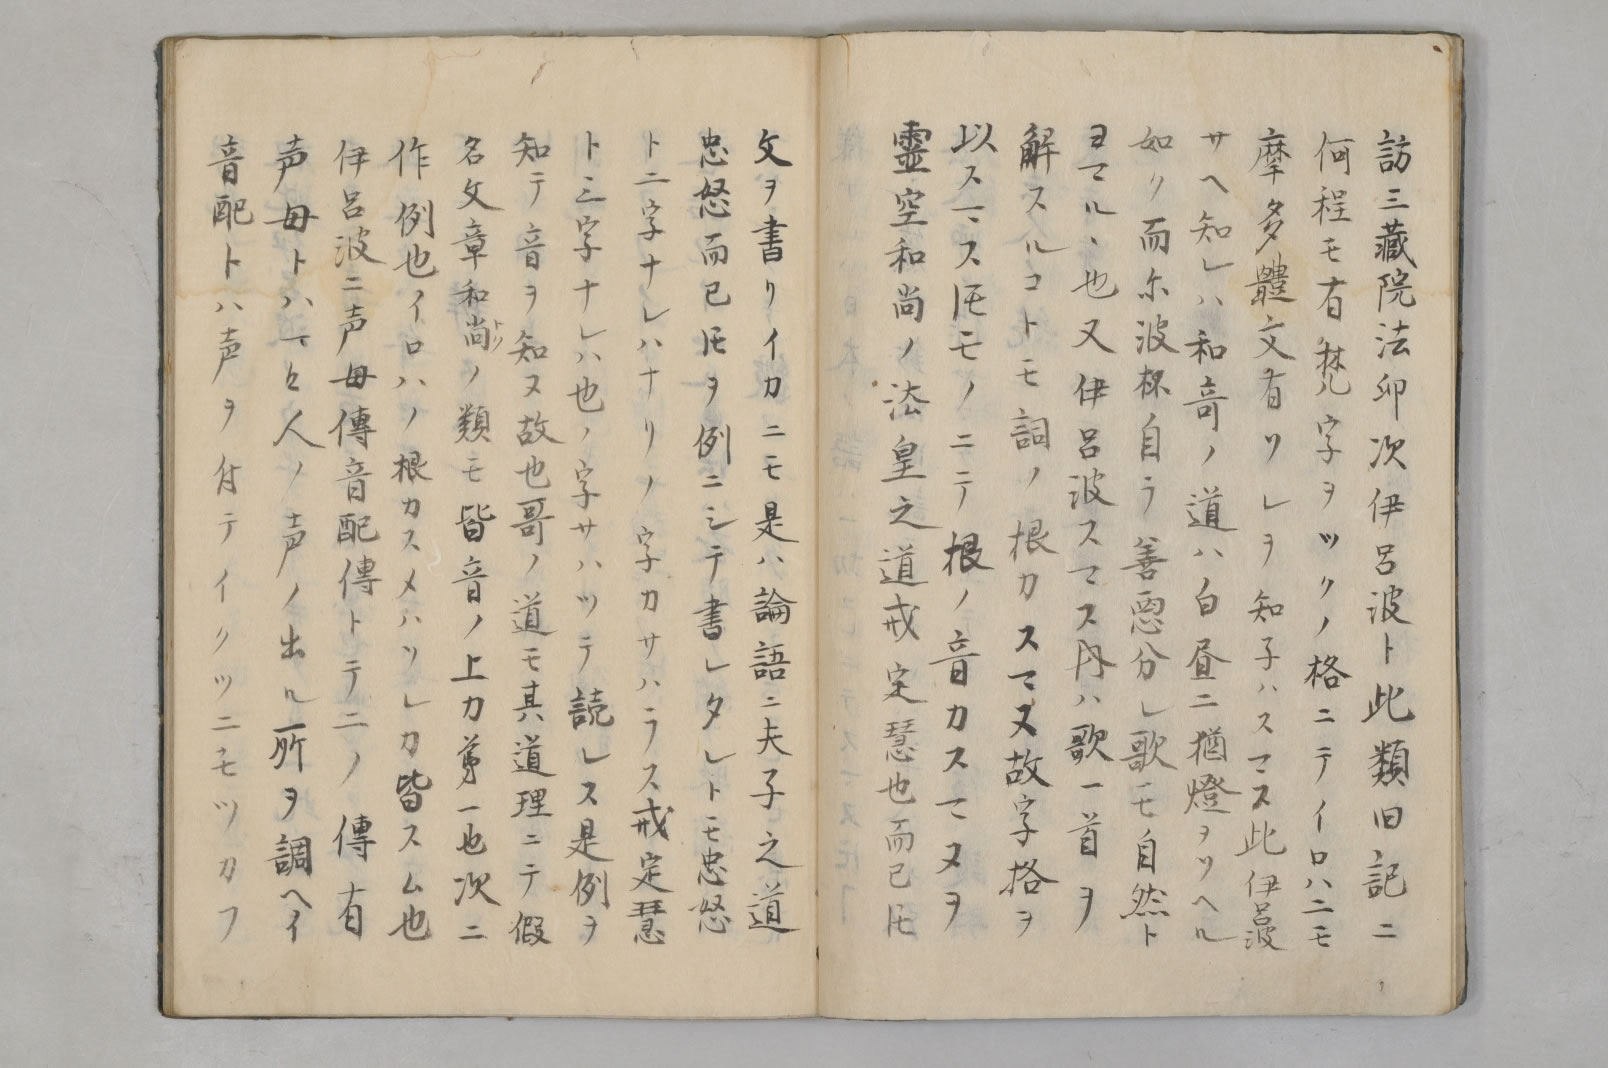 訪三藏院法卯次伊呂波ト此類旧記ニ
何程モ有梵字ヲツクノ格ニテイロハニモ
摩多體文有リレヲ知子ハスマス此伊呂波
サヘ知レハ和哥ノ道ハ白昼ニ猶燈ヲツヘル
如リ而尓波杯自ラ善悪分レ歌モ自然ト
ヨマル丶也又伊呂波スマス内ハ歌一首ヲ
解スルコトモ詞ノ根カスマヌ故字格ヲ
以スマス𪜈モノニテ根ノ音カスマヌヲ
靈空和尚ノ法皇之道戒定慧也而已𪜈
文ヲ書リイカニモ是ハ論語ニ夫子之道
忠怒而已𪜈ヲ例ニシテ書レタレトモ忠怒
ト二字ナレハナリノ字カサハラス戒定慧
ト三字ナレハ也ノ字サハツテ読レス是例ヲ
知テ音ヲ知ヌ故也哥ノ道モ其道理ニテ假
名文章和尚ノ類モ皆音ノ上カ第一也次ニ
作例也イロハノ根カスメハソレカ皆スム也
伊呂波ニ声母傳音配傳トテ二ノ傳有
声母トハマヒ人ノ声ノ出ル所ヲ調ヘイ
音配トハ声ヲ付テイクツニモツカフ